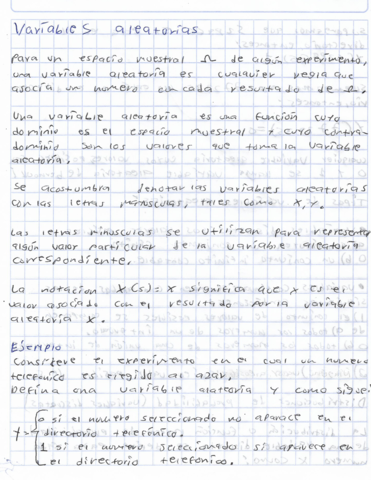 Variables aleatorias
Para un espacio muestral Ω de algún experimento,
una variable aleatoria es cualquier regla que
asocia un numero con cada resultado de Ω.
Una variable aleatoria es una función cuyo
dominio es el espacio muestral y cuyo contra-
dominio son los valores que toma la variable
aleatoria.
Se acostumbra denotar las variables aleatorias
con las letras mayusculas, tales como X,Y.
Las letras minusculas se utilizan para representar
algún valor particular de la variable aleatoria
correspondiente.
La notación X(s)=x significa que x es el
valor asociado con el resultado por la variable
aleatoria X.
Ejemplo
Considere el experimento en el cual un numero
telefonico es elegido al azar.
Defina una variable aleatoria Y como sigue:
0 si el numero seleccionado no aparace en el
Y= directorio telefónico.
1 si el numero selecionado si aparece en
el directorio telefonico.